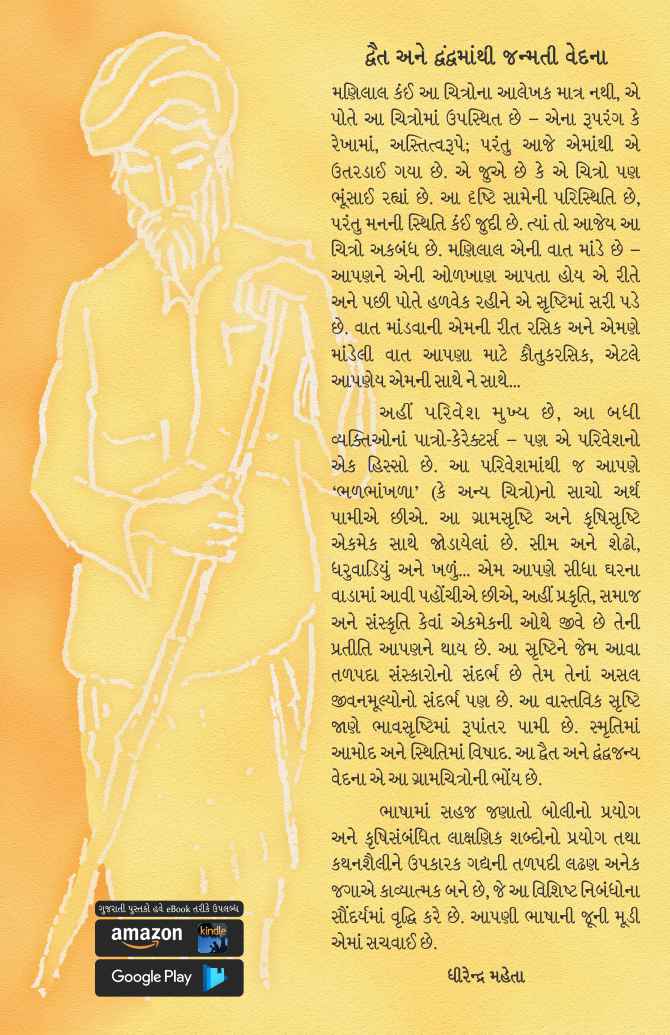 દ્વૈત અને દ્વંદ્વમાંથી જન્મતી વેદના
મણિલાલ કંઈ આ ચિત્રોના આલેખક માત્ર નથી, એ
પોતે આ ચિત્રોમાં ઉપસ્થિત છે – એના રૂપરંગ કે
રેખામાં, અસ્તિત્વરૂપે; પરંતુ આજે એમાંથી એ
ઉતરડાઈ ગયા છે. એ જુએ છે કે એ ચિત્રો પણ
ભૂંસાઈ રહ્યાં છે. આ દૃષ્ટિ સામેની પરિસ્થિતિ છે,
પરંતુ મનની સ્થિતિ કંઈ જુદી છે. ત્યાં તો આજેય આ
ચિત્રો અકબંધ છે. મણિલાલ એની વાત માંડે છે –
આપણને એની ઓળખાણ આપતા હોય એ રીતે
અને પછી પોતે હળવેક રહીને એ સૃષ્ટિમાં સરી પડે
છે. વાત માંડવાની એમની રીત રસિક અને એમણે
માંડેલી વાત આપણા માટે કૌતુકરસિક, એટલે
આપણેય એમની સાથે ને સાથે...
અહીં પરિવેશ મુખ્ય છે, આ બધી
વ્યક્તિઓનાં પાત્રો-કેરેક્ટર્સ – પણ એ પરિવેશનો
એક હિસ્સો છે. આ પરિવેશમાંથી જ આપણે
‘ભળભાંખળા’ (કે અન્ય ચિત્રો)નો સાચો અર્થ
પામીએ છીએ. આ ગ્રામસૃષ્ટિ અને કૃષિસૃષ્ટિ
એકમેક સાથે જોડાયેલાં છે. સીમ અને શેઢો,
ધરુવાડિયું અને ખળું... એમ આપણે સીધા ઘરના
વાડામાં આવી પહોંચીએ છીએ, અહીં પ્રકૃતિ, સમાજ
અને સંસ્કૃતિ કેવાં એકમેકની ઓથે જીવે છે તેની
પ્રતીતિ આપણને થાય છે. આ સૃષ્ટિને જેમ આવા
તળપદા સંસ્કારોનો સંદર્ભ છે તેમ તેનાં અસલ
જીવનમૂલ્યોનો સંદર્ભ પણ છે. આ વાસ્તવિક સૃષ્ટિ
જાણે ભાવસૃષ્ટિમાં રૂપાંતર પામી છે. સ્મૃતિમાં
આમોદ અને સ્થિતિમાં વિષાદ. આ દ્વૈત અને દ્વંદ્વજન્ય
વેદના એ આ ગ્રામચિત્રોની ભોંય છે.
ભાષામાં સહજ જણાતો બોલીનો પ્રયોગ
અને કૃષિસંબંધિત લાક્ષણિક શબ્દોનો પ્રયોગ તથા
કથનશૈલીને ઉપકારક ગદ્યની તળપદી લઢણ અનેક
જગાએ કાવ્યાત્મક બને છે, જે આ વિશિષ્ટ નિબંધોના
સૌંદર્યમાં વૃદ્ધિ કરે છે. આપણી ભાષાની જૂની મૂડી
એમાં સચવાઈ છે.
ધીરેન્દ્ર મહેતા
ગુજરાતી પુસ્તકો હવે eBook તરીકે ઉપલબ્ધ
amazon kindle
Google Play